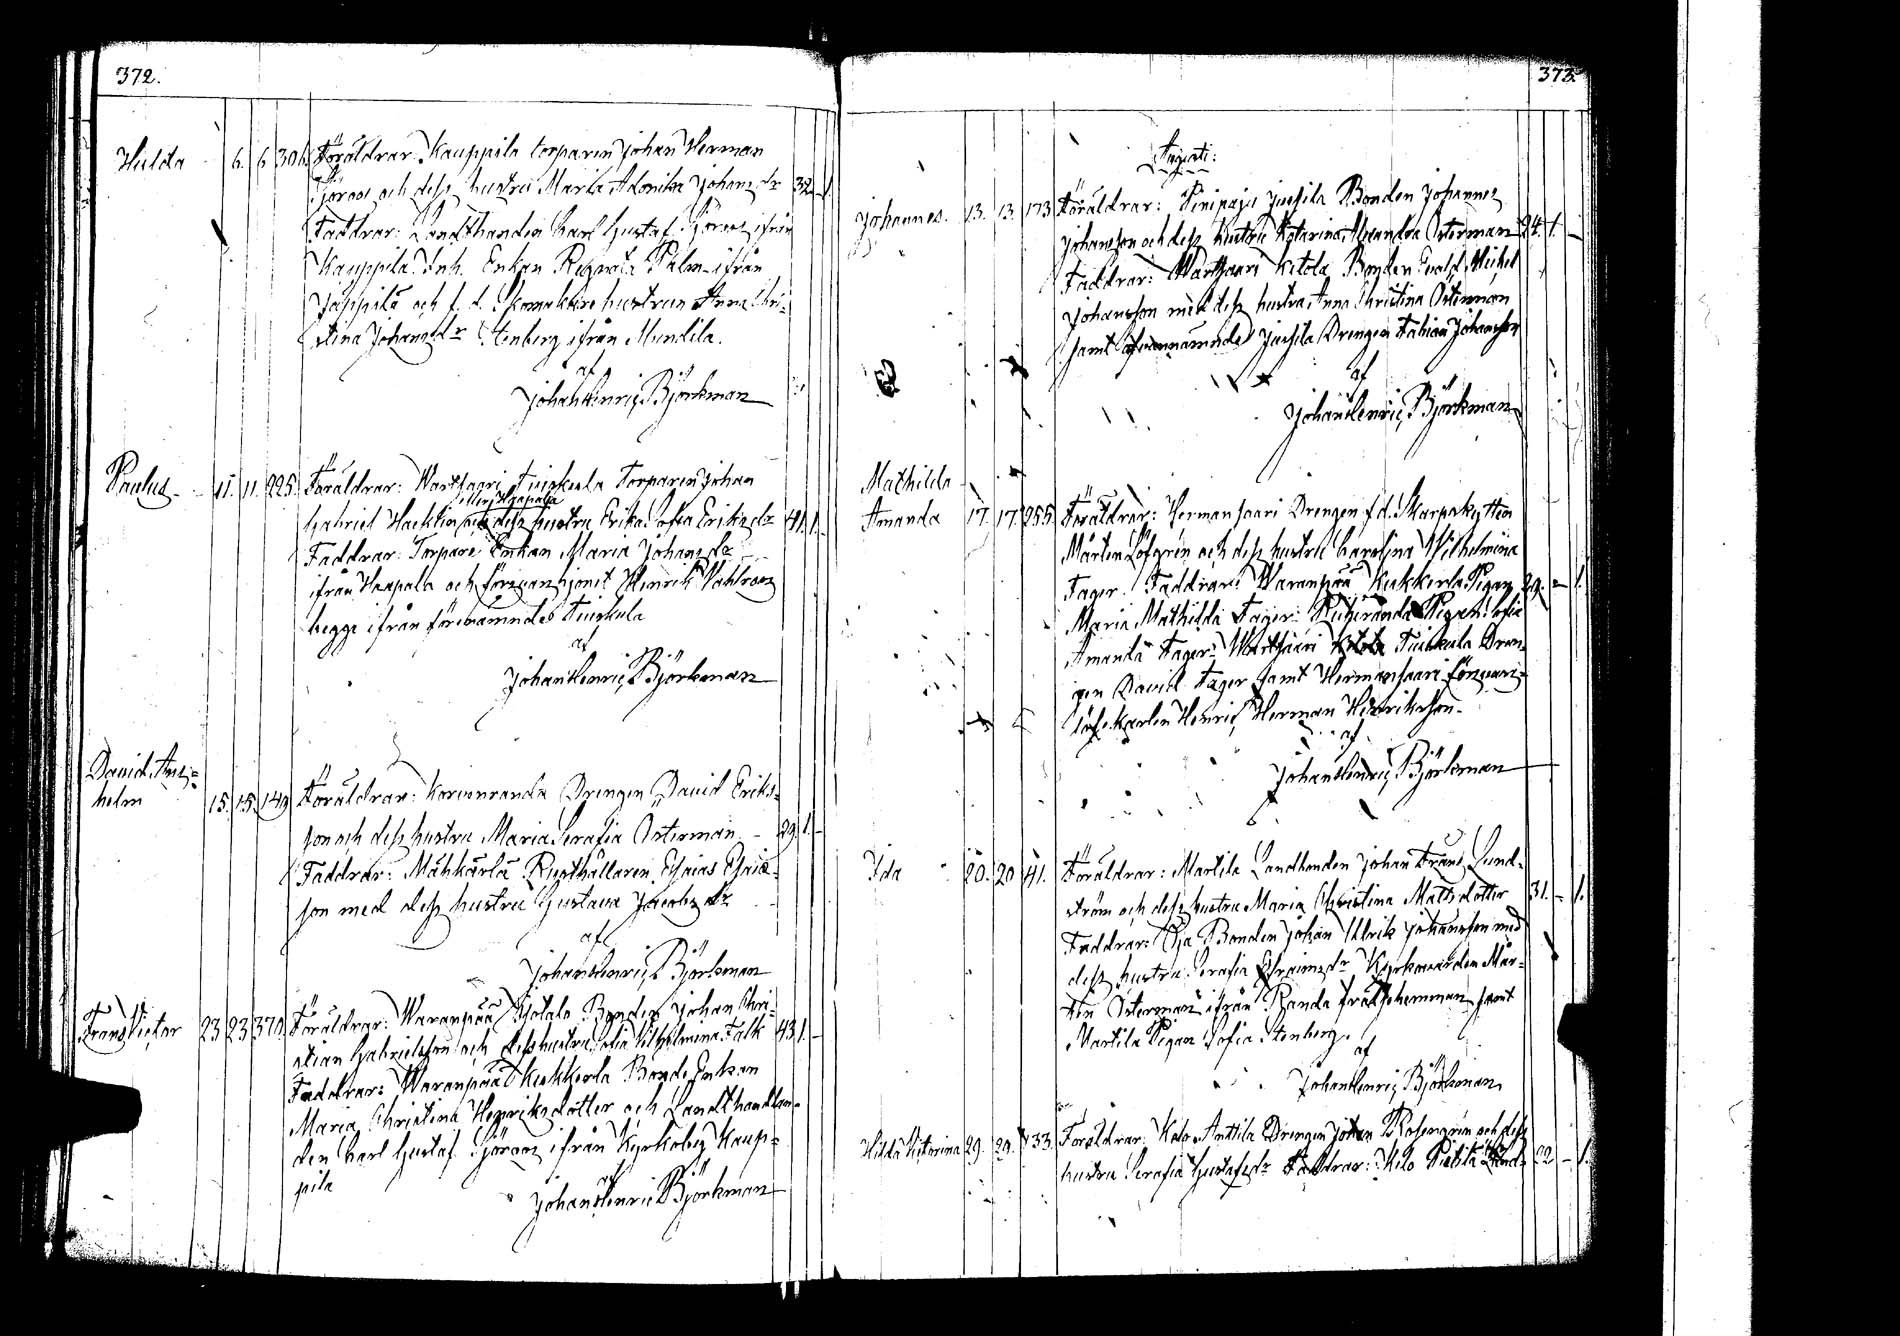 372.
Hulda 6. 6 306. Föräldrar: Kauppila torparen Johan Herman
Sjöroos och dess hustru Maria Adonika Johansdr 32 - 1.
Faddrar: Landthanden Carl Gustaf Sjöroos ifrån
Kauppila. Inh. Enkan Regnata Palm ifrån
Jappilä och f. d. Skomakare hustrun Anna Chri-
stina Johansdr Stenberg ifrån Mundila.
af
Johan Henric Björkman
Paulus 11. 11. 225. Föräldrar: Wartsaari Tuiskula Torparen Johan
Gabriel Hacklin eller Haapala och dess hustru Erika Sofia Eriksdr 41. 1. -
Faddrar: Torpare Enkan Maria Johansdr
ifrån Haapala och Henrik Wahlroos
begge ifrån förenämnde Tuiskula
af
Johan Henric Björkman
David Ans=
helm 15. 15. 149 Föräldrar: Korvenranda Drengen David Eriks=
son och dess hustru Maria Serafia Österman - 29. 1. -
Faddrar: Mähkärlä Rusthållaren Esaias Esaias-
son med dess hustru Gustava Jacobsdr
af
Johan Henric Björkman
Frans Victor 23 23 370. Föräldrar: Waranpää Ojotalo Bonden Johan Chri-
stian Gabrielsson och dess hustru Sofia Vilhelmina Falk 43 1. -
Faddrar: Waranpää Kukkerla Bonde Enkan
Maria Christina Henriksdotter och Landthandlan-
den Carl Gustaf Sjöroos ifrån Kyrkoby Kaup=
pila
af
Johan Henric Björkman
373.
Augusti:
Johannes. 13. 13. 173 Föräldrar: Pinipaju Jussila Bonden Johannes
Johansson och dess hustru Katarina Alexandra Österman 24. 1. -
Faddrar: Wartsaari Ketola Bonden Evald Mickel
Johansson med dess hustru Anna Christina Österman
samt ofvannämnde Jussila Drengen Fabian Johansson
af
Johan Henric Björkman
Mathilda
Amanda 17. 17. 255. Föräldrar: Hermansaari Drengen f. d. Skarpskytten
Mårten Löfgrén och dess hustru Carolina Wilhelmina
Fager. Faddrar: Waranpää Kukkerla Pigan 29. - 1.
Maria Mathilda Fager. Pigan Sofia
Amanda Fager. Wartsaari Tuiskula Dren-
gen David Fager samt Hermansaari
karlen Henric Herman Henriksson.
af
Johan Henric Björkman
Ida 20. 20 41. Föräldrar: Martila Landbonden Johan Frans Lund-
ström och dess hustru Maria Christina Mattsdotter 31. - 1.
Faddrar: Oja Bonden Johan Ulrik Johansson med
dess hustru Serafia Efraimsdr Kyrkovärden Mår-
ten Österman ifrån Randa frälsehemman samt
Martila Pigan Sofia Stenberg.
af
Johan Henric Björkman
Hilda Katarina 29. 29. 133. Föräldrar: Kelo Anttila Drengen Johan Rosengrén och dess
hustru Serafia Gustafsdr Faddrar: Kelo Pietilä Land- 22 - 1.